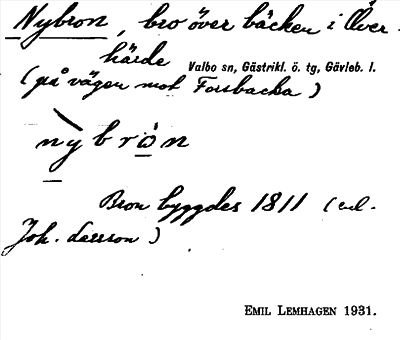 Nybron, bro över bäcken i Över-
härde Valbo sn, Gästrikl. ö. tg, Gävleb. l.
(på vägen mot Forsbacka)
nybrón
Bron byggdes 1811 (enl.
Joh. Larsson)
EMIL LEMHAGEN 1931.